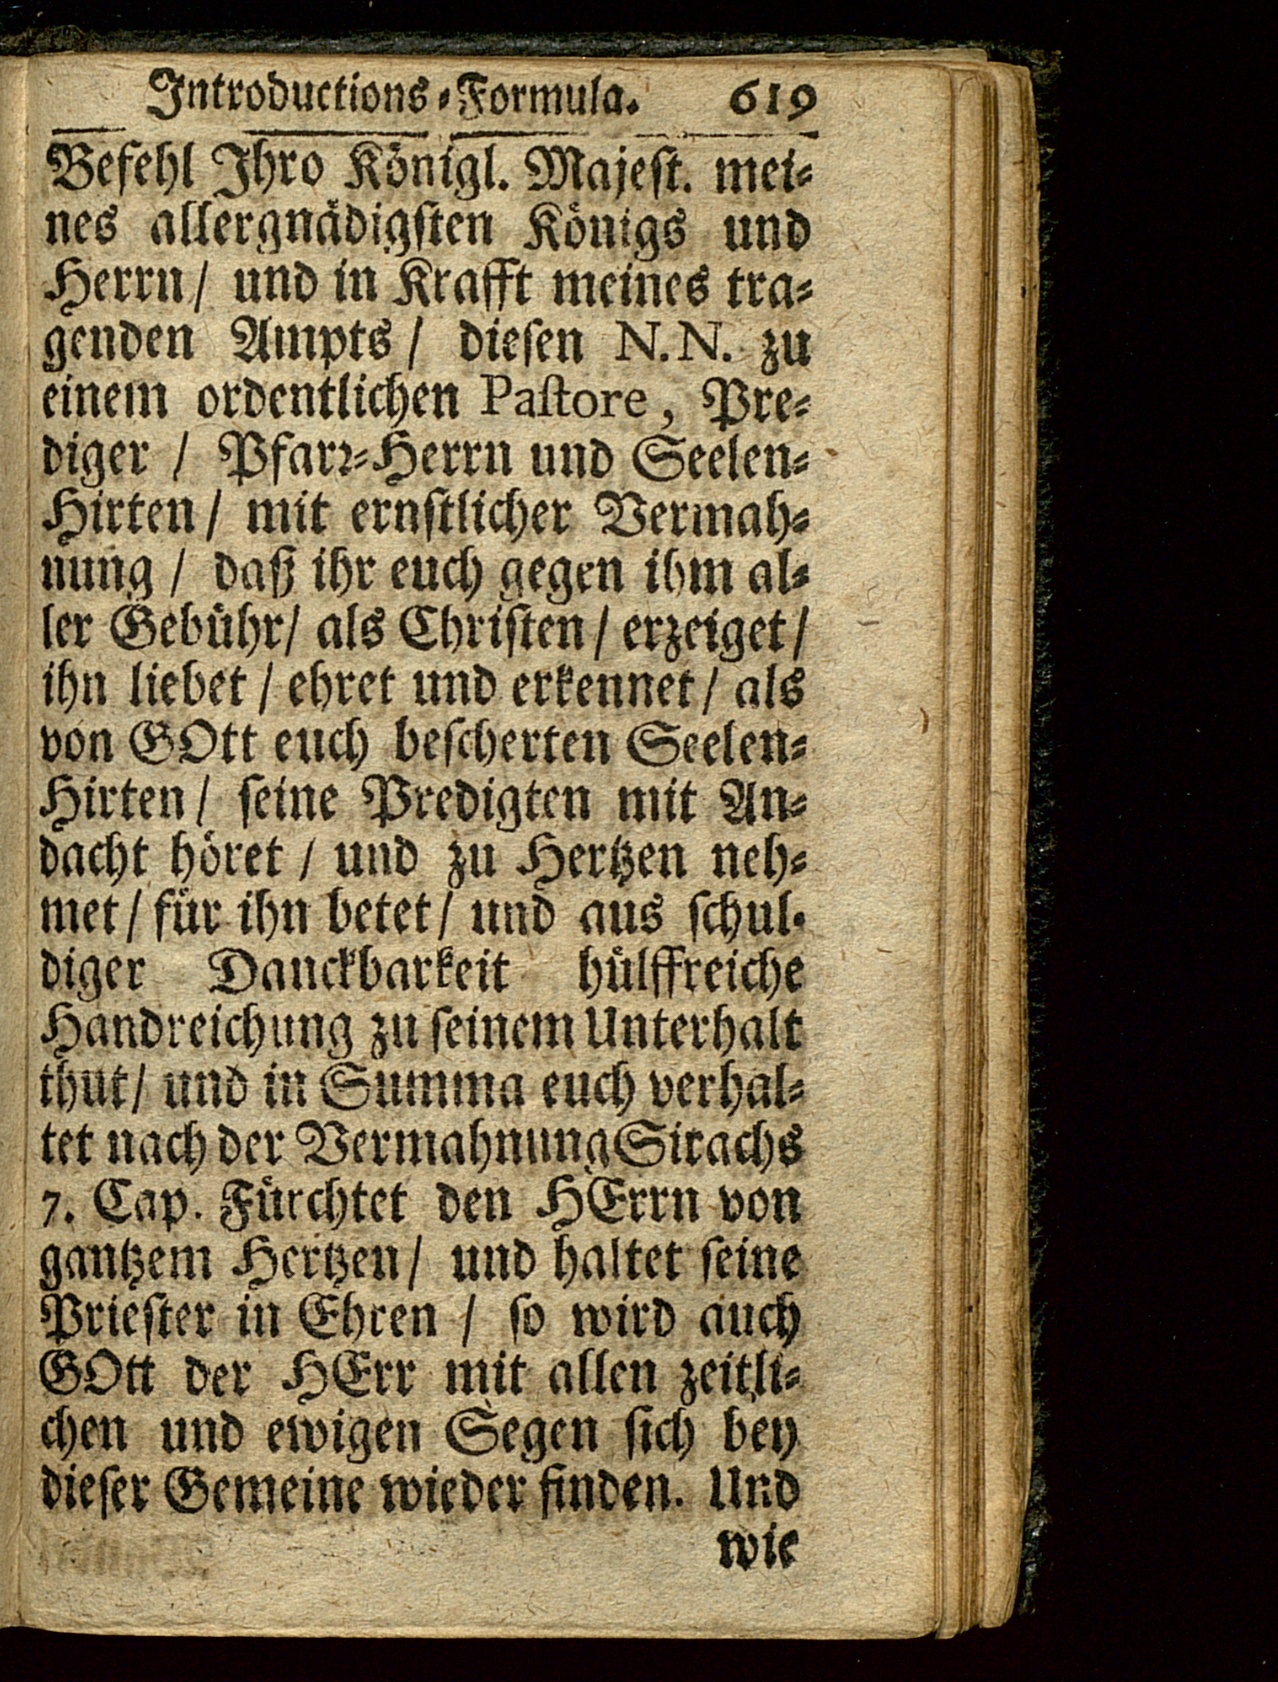 Introductions-Formula. 619
Befehl Ihro Königl. Majest. mei-
nes allergnädigsten Königs und
Herrn/ und in Krafft meines tra-
genden Ampts/ diesen N.N. zu
einem ordentlichen Pastore, Pre-
diger / Pfarr-Herrn und Seelen-
Hirten/ mit ernstlicher Vermah-
nung / daß ihr euch gegen ihm al-
ler Gebühr/ als Christen/ erzeiget/
ihn liebet / ehret und erkennet / als
von GOtt euch bescherten Seelen-
Hirten/ seine Predigten mit An-
dacht höret / und zu Hertzen neh-
met / für ihn betet / und aus schul-
diger Danckbarkeit hülffreiche
Handreichung zu seinem Unterhalt
thut/ und in Summa euch verhal-
tet nach der Vermahnung Sirachs
7. Cap. Fürchtet den HErrn von
gantzem Hertzen/ und haltet seine
Priester in Ehren / so wird auch
GOtt der HErr mit allen zeitli-
chen und ewigen Segen sich bey
dieser Gemeine wieder finden. Und
wie